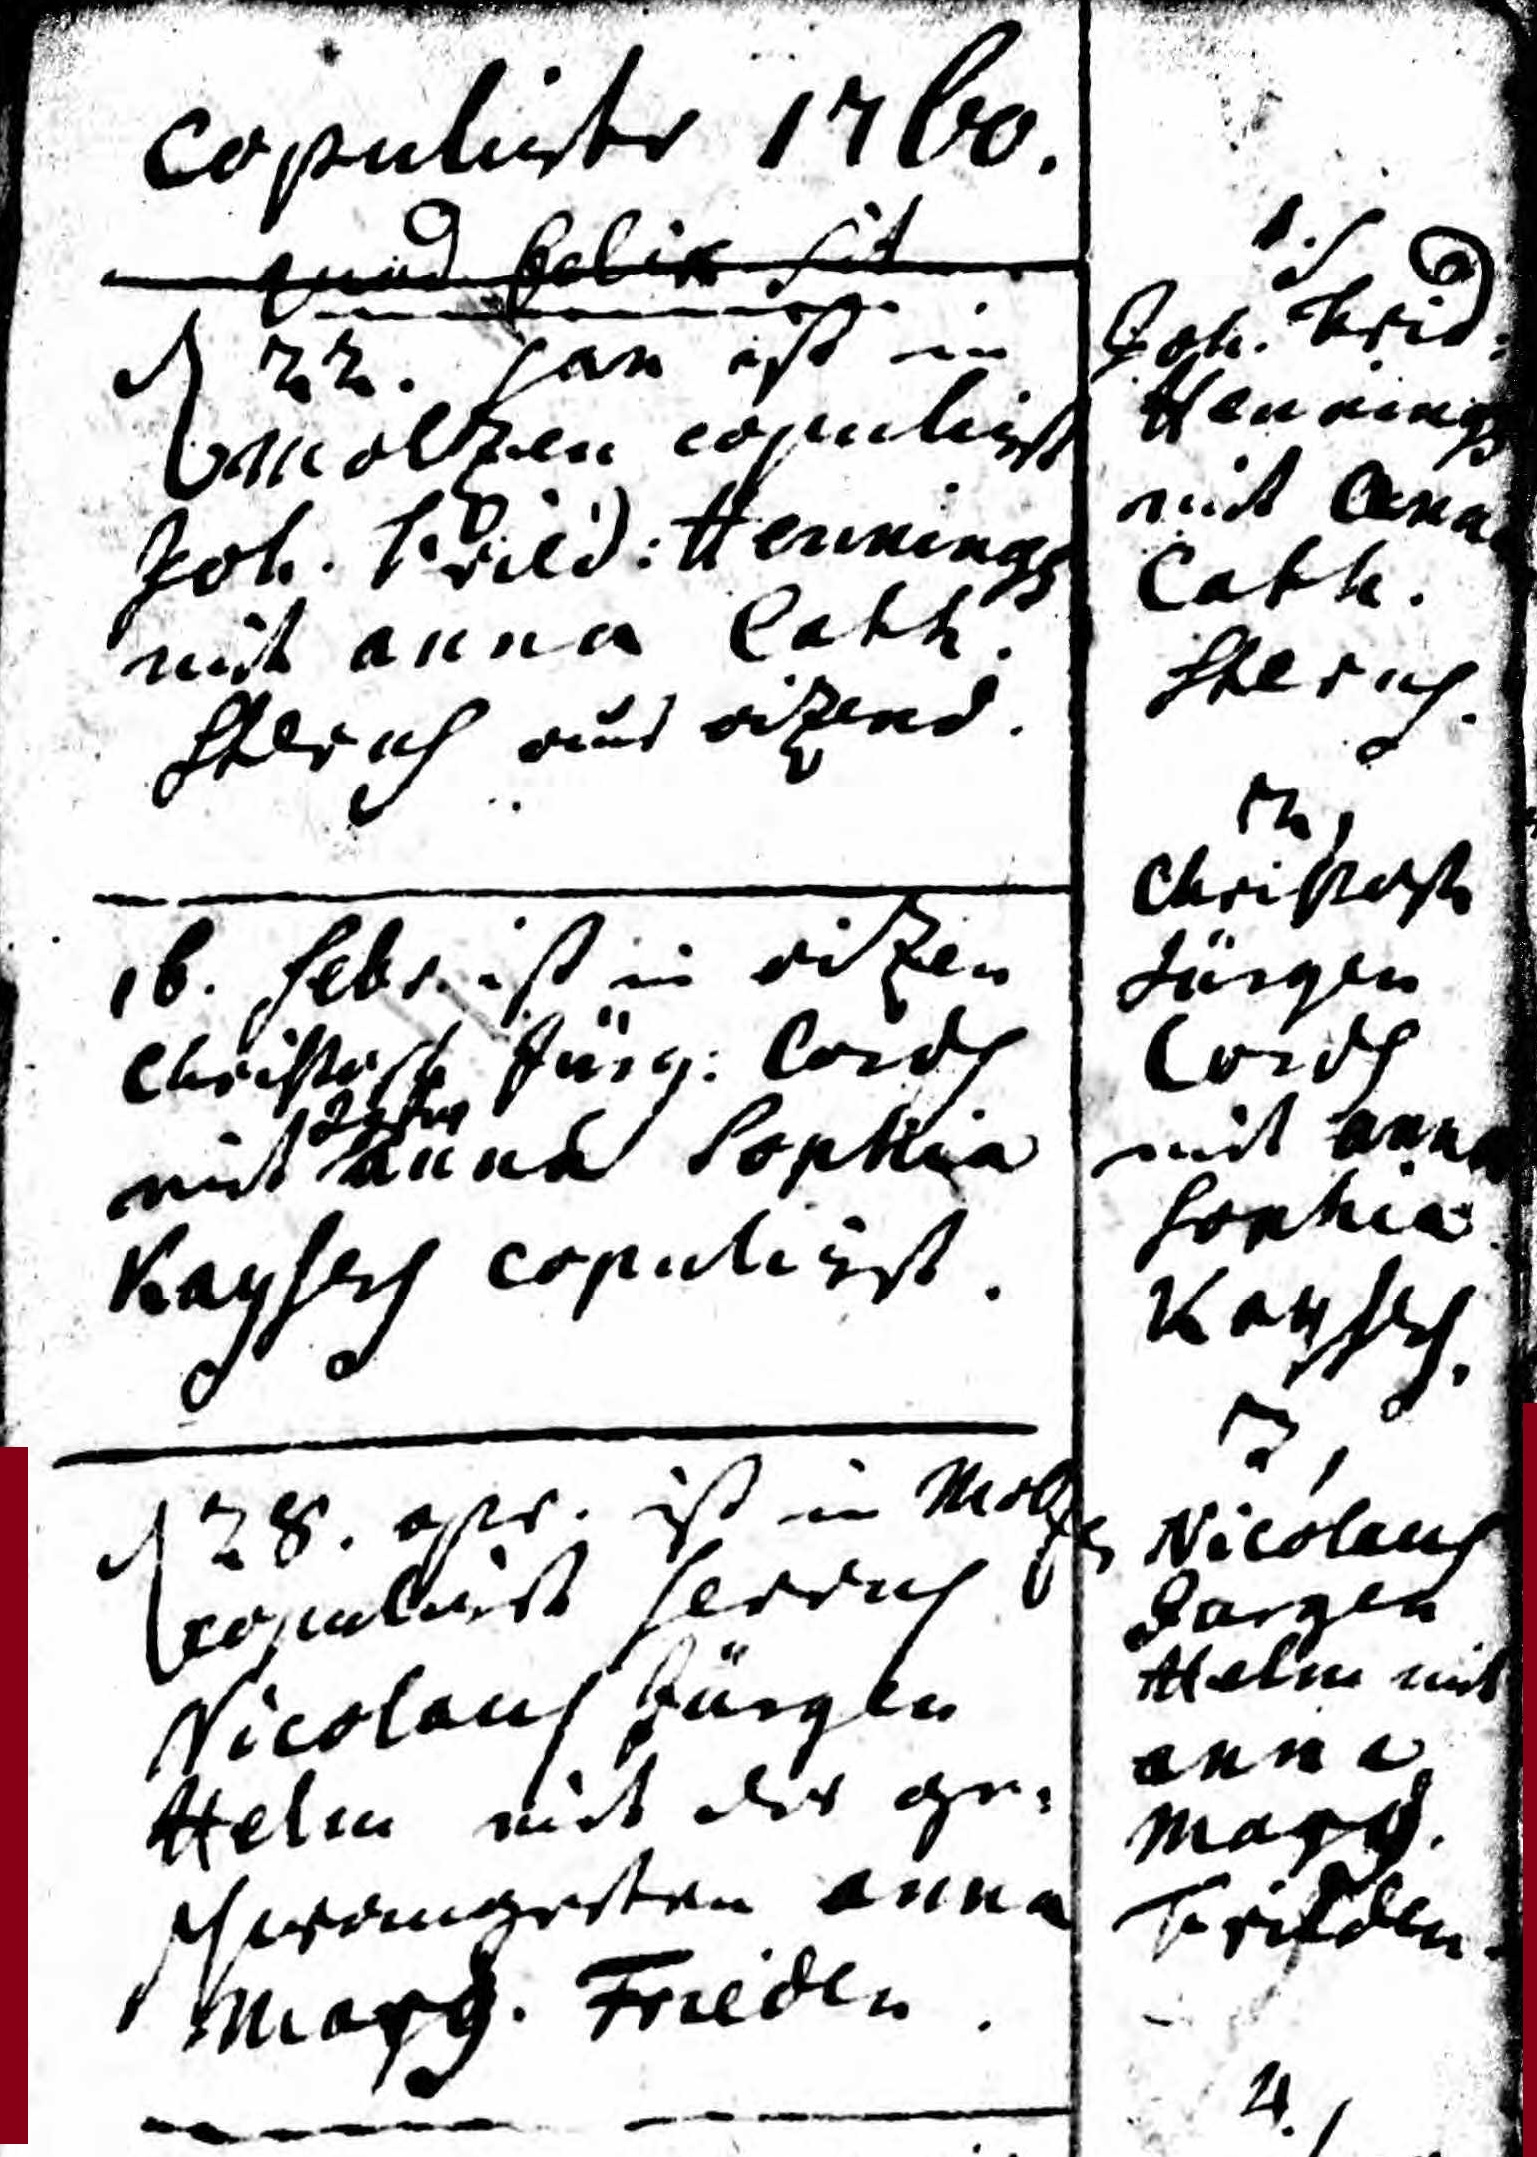 Copulirte 1760.
quod felix sit
d 22. Jan ist in
Moltzen copulirt
Joh. Fried: Hennings
mit Anna Cath.
aus
16. Febr. ist in Ritzen
Christoph Jürg: Cords
mit Anna Sophia
Kaysers copulirt.
d 28. apr. ist in Moltzen
copulirt Herr
Nicolaus Jürgen
Helm mit der ge-
schwängerten Anna
Marg. Frieden.
1.
Joh. Frid:
Hennings
mit Anna
Cath.
2,
Christoph
Jürgen
Cords
mit Anna
Sophia
Kaysers.
3,
Nicolaus
Jurgen
Helm mit
Anna
Marg.
Frieden.
4.